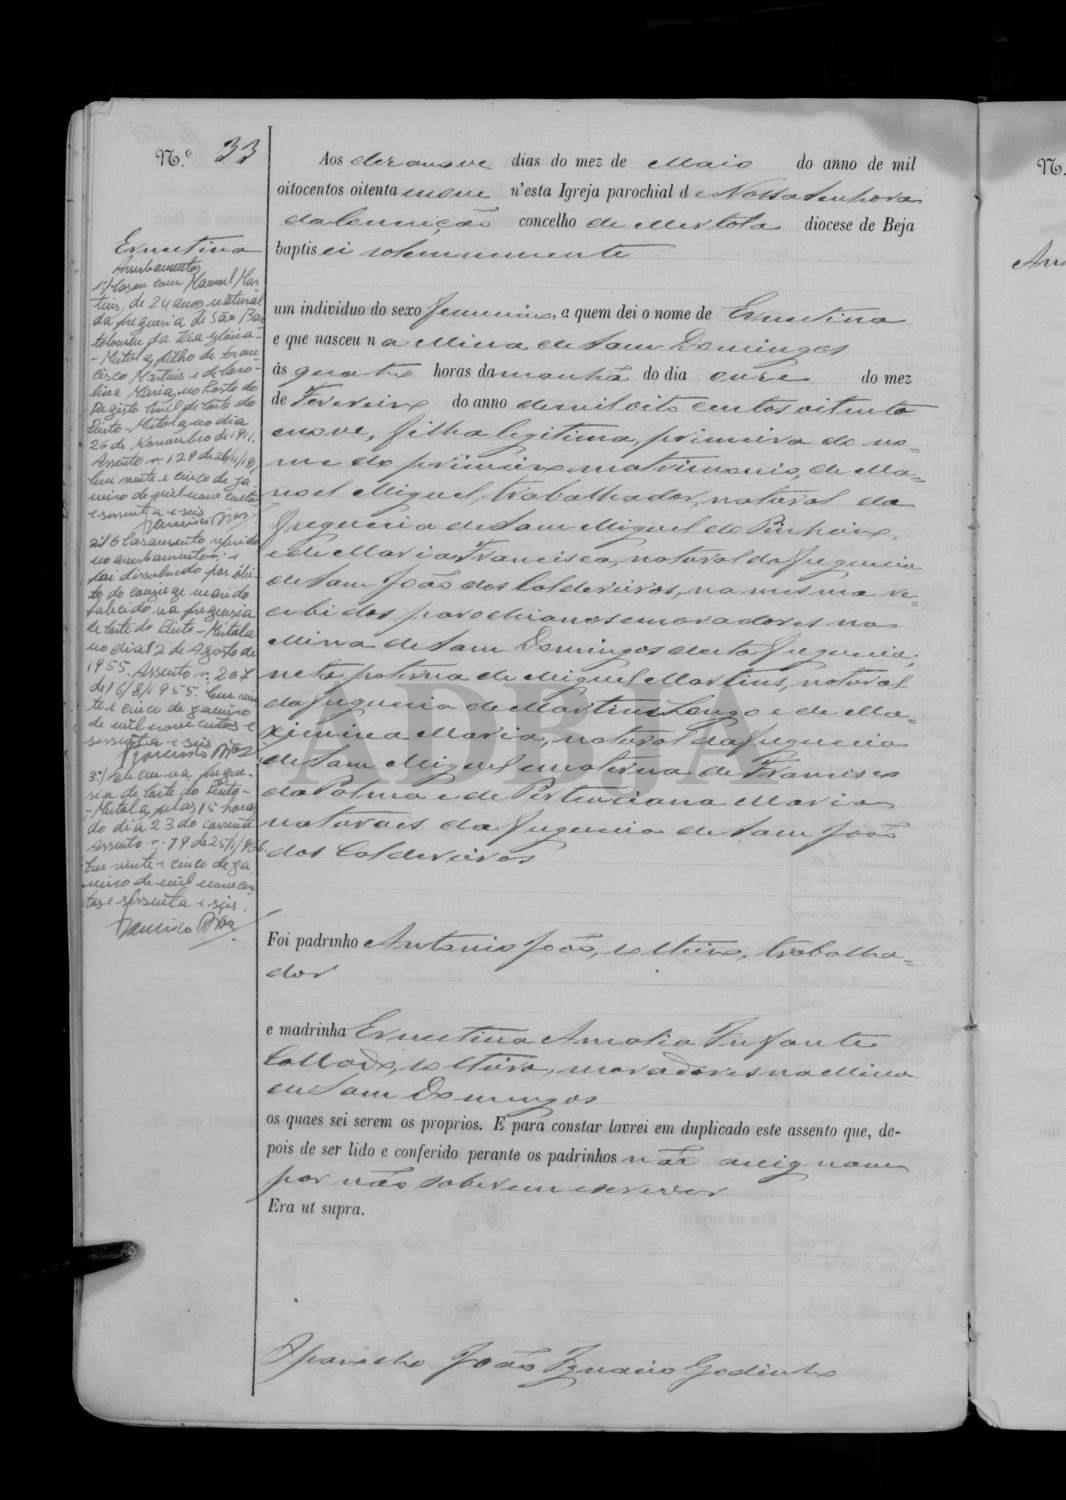 N.º 33
Ernestina
Averbamentos
1º/ Casou com Manuel Mar-
tins, de 24 anos, natural
da freguesia de São Bar-
tolomeu da Via Glória-
-Mertola, filho de Fran-
cisco Martins e de Caro-
lina Maria, no Posto do
Registo Civil de Corte do
Pinto-Mertola, no dia
26 de Novembro de 1911.
Assento n.º 129 de 26/11/1911
Em vinte e cinco de ja-
neiro de mil nove centos
e sessenta e seis
2º/ O casamento referido
no averbamento n.º 1
foi dissolvido por óbi-
to do conjuge marido
falecido na freguesia
de Corte do Pinto-Mertola
no dia 12 de Agosto de
1955. Assento n.º 207
de 16/8/1955. Em vin-
te e cinco de janeiro
de mil nove centos e
sessenta e seis
3º/ Faleceu na fregue-
sia de Corte do Pinto-
-Mertola, pelas 15 horas
do dia 23 do corrente
Assento n.º 19 de 25/1/966.
Em vinte e cinco de ja-
neiro de mil nove cen-
tos e sessenta e seis.
Aos dezanove dias do mez de Maio do anno de mil
oitocentos oitenta e nove n'esta Igreja parochial de Nossa Senhora
da Conceição concelho de Mertola diocese de Beja
baptisei solemnemente
um individuo do sexo femenino, a quem dei o nome de Ernestina
e que nasceu na Mina de Sam Domingos
ás quatro horas da manhã do dia onze do mez
de Fevereiro do anno de mil oito centos oitenta
e nove, filha legitima, primeira do no-
me do primeiro matrimonio, de Ma-
noel Miguel, trabalhador, natural da
freguezia de Sam Miguel do Pinheiro,
e de Maria Francisca, natural da freguezia
de Sam João dos Caldereiros, na mesma re-
cebidos, parochianos e moradores na
Mina de Sam Domingos desta freguezia;
neta paterna de Miguel Martins, natural
da freguezia de Martim Longo e de Ma-
ximina Maria, natural da freguezia
de Sam Miguel e materna de Francisco
da Palma e de Perpetua Maria
naturaes da freguezia de Sam João
dos Caldereiros
Foi padrinho Antonio João, solteiro, trabalha-
dor
e madrinha Ernestina Amalia Infante
Collaço, solteira, moradores na Mina
de Sam Domingos
os quaes sei serem os proprios. E para constar lavrei em duplicado este assento que, de-
pois de ser lido e conferido perante os padrinhos não assignam
por não saberem escrever
Era ut supra.
O parocho João Ignacio Godinho
ADBJA
N.